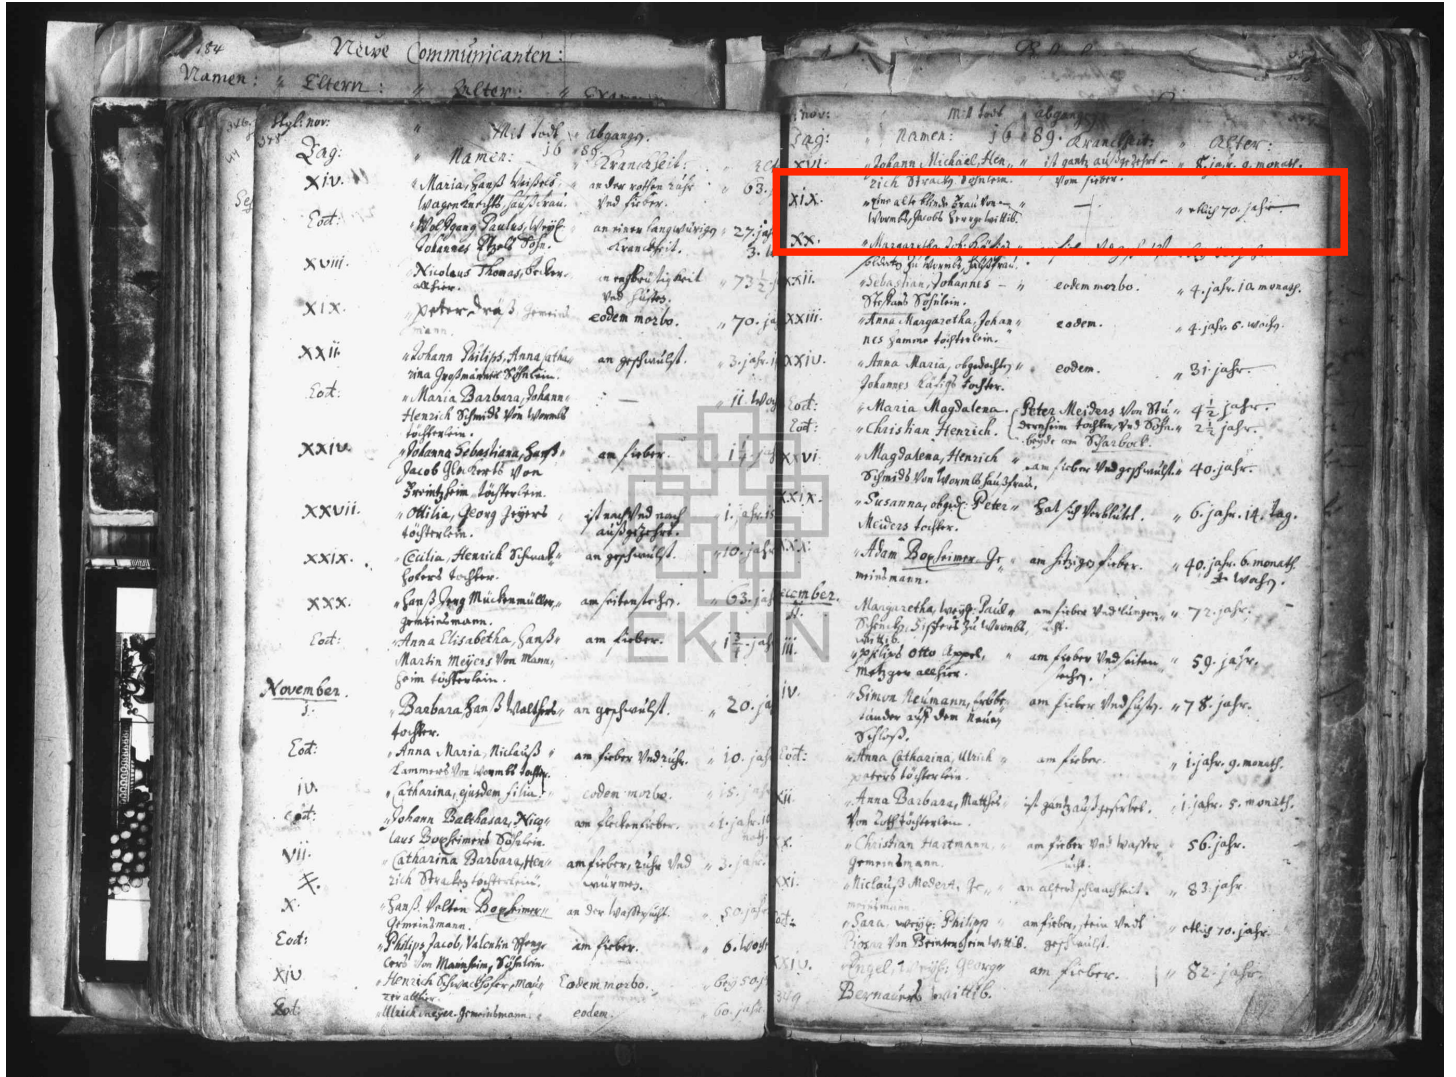 184
Newe Communicanten:
Namen: " Eltern: " Alter:
Styli nov:
Mit todt " abgangen.
Tag: Namen: 16 " 89. Kranckheit:
XIV. "Maria, Hanß
Wagenknechts haußfrau. an der rothen ruhr Und fieber. 63.
Eod: "Wolffgang Paulus, Weyl:
Johannes Sohn. an einer langwürigen Kranckheit. 27. jah
XVIII. Nicolaus Thomas, becker
allhier. an engbrüstigkeit Und husten. 73 1/2
XIX. "Peter Gemeins
mann. eodem morbo. "70. ja
XXII. "Johann Philips, Anna Catha
rina Großmännin Söhnlein. an geschwulst. "3. jahr
Eod: "Maria Barbara, Johann
Henrich Schmids Von Wormbs
töchterlein. — 11. Woch
XXIV. "Johanna Sebastiana, Hanß
Jacob Glockerts von
töchterlein. am fieber.
XXVII. "Ottilia, Georg Heyers
töchterlein. ist nach Und nach außgezehrt. "1. jahr
XXIX. "Cecilia, Henrich Schwal
hofers tochter. an geschwulst. "10. jahr
XXX. "Hanß Jerg Mückenmüller,
gemeinsmann. am seitenstechen. "63. jah
Eod: "Anna Elisabetha, Hanß
Martin Meyers Von Mann
heim töchterlein. am fieber. 1 3/4 jah
November.
1. "Barbara, Hanß Walthers
tochter. an geschwulst. "20. ja
Eod: "Anna Maria, Niclauß
Lammers Von Wormbs tochter. am fieber Und ruhr. "10. jah
IV. "Catharina, ejusdem filia. eodem morbo. "15. jah
eod: "Johann Balthasar, Nico
laus Bopheimers Söhnlein. am fleckenfieber. "1. jahr
VII. "Catharina Barbara, Hen
rich Stracken töchterlein. am fieber, ruhr Und würmen. "3. jahr
X. "Hanß Velten Bopheimer
Gemeinsmann. an der Wassersucht. "50. jahr
Eod: "Philips Jacob, Valentin
Von Mannheim, Söhnlein. am fieber. "6. Woch
XIV "Henrich Schwalhofer, Mau
rer allhier. Eodem morbo. "bey 50. j
Eod: "Ulrich Meyer. Gemeinsmann. eodem. "60. jahr
nov:
Mit todt " abgangen.
Tag: Namen: 16 " 89. Kranckheit: Alter:
XVI. "Johann Michael, Hen
rich Stracken Söhnlein. ist gantz außgezehrt Vom fieber. 8. jahr. 9. monath.
XIX. "Eine alte blinde Frau Von
Wormbs, Jacobs wittib. — "etlich 70. jahr.
XX. "Margaretha, Joh:
zu Wormbs, haußfrau.
XXII. "Sebastian, Johannes
Stephans Söhnlein. eodem morbo. "4. jahr. 10. monath.
XXIII. "Anna Margaretha, Johan
nes Hamme töchterlein. eodem. "4. jahr. 5. wochen.
XXIV. "Anna Maria, obgedachten
Johannes tochter. eodem. "31. jahr.
Eod: "Maria Magdalena.
Eod: "Christian Henrich. Peter Meiders Von Stü
dernheim tochter, Und Sohn.
beyde am Scharbock. "4 1/2 jahr.
2 1/2 jahr.
XXVI. "Magdalena, Henrich
Schmids Von Wormbs haußfrau. am fieber Und geschwulst. "40. jahr.
XXIX. "Susanna, obged: Peter
Meiders tochter. hat sich Verblütet. "6. jahr. 14. tag.
XXX: "Adam Bopheimer Ge
meinsmann. am hitzigen fieber. "40. jahr. 6. monath.
Wochen.
December.
Margaretha, weyl: Paul
zu Wormbs,
wittib. am fieber Und "72. jahr.
iii. "Philips Otto Appel,
Metzger allhier. am fieber Und seiten stechen. "59. jahr.
iv. "Simon Neumann,
auff dem Neuen
Schloß. am fieber Und husten. "78. jahr.
Eod: "Anna Catharina, Ulrich
peters töchterlein. am fieber. "1. jahr. 9. monath.
XII "Anna Barbara, Matthes
Von töchterlein. ist gantz "1. jahr. 5. monath.
XX. "Christian Hartmann,
Gemeinsmann. am fieber Und Wasser sucht. "56. jahr.
XXI. "Niclauß Modert, Ge
meinsmann. an alters schwachheit. "83. jahr
eod: "Sara, weyl: Philipp
Von wittib. am fieber, stein Und geschwulst. "etlich 70. jahr.
XXIV. Engel, Weyl: Georg
Bernauers Wittib. am fieber. "82. jahr.
EKHN